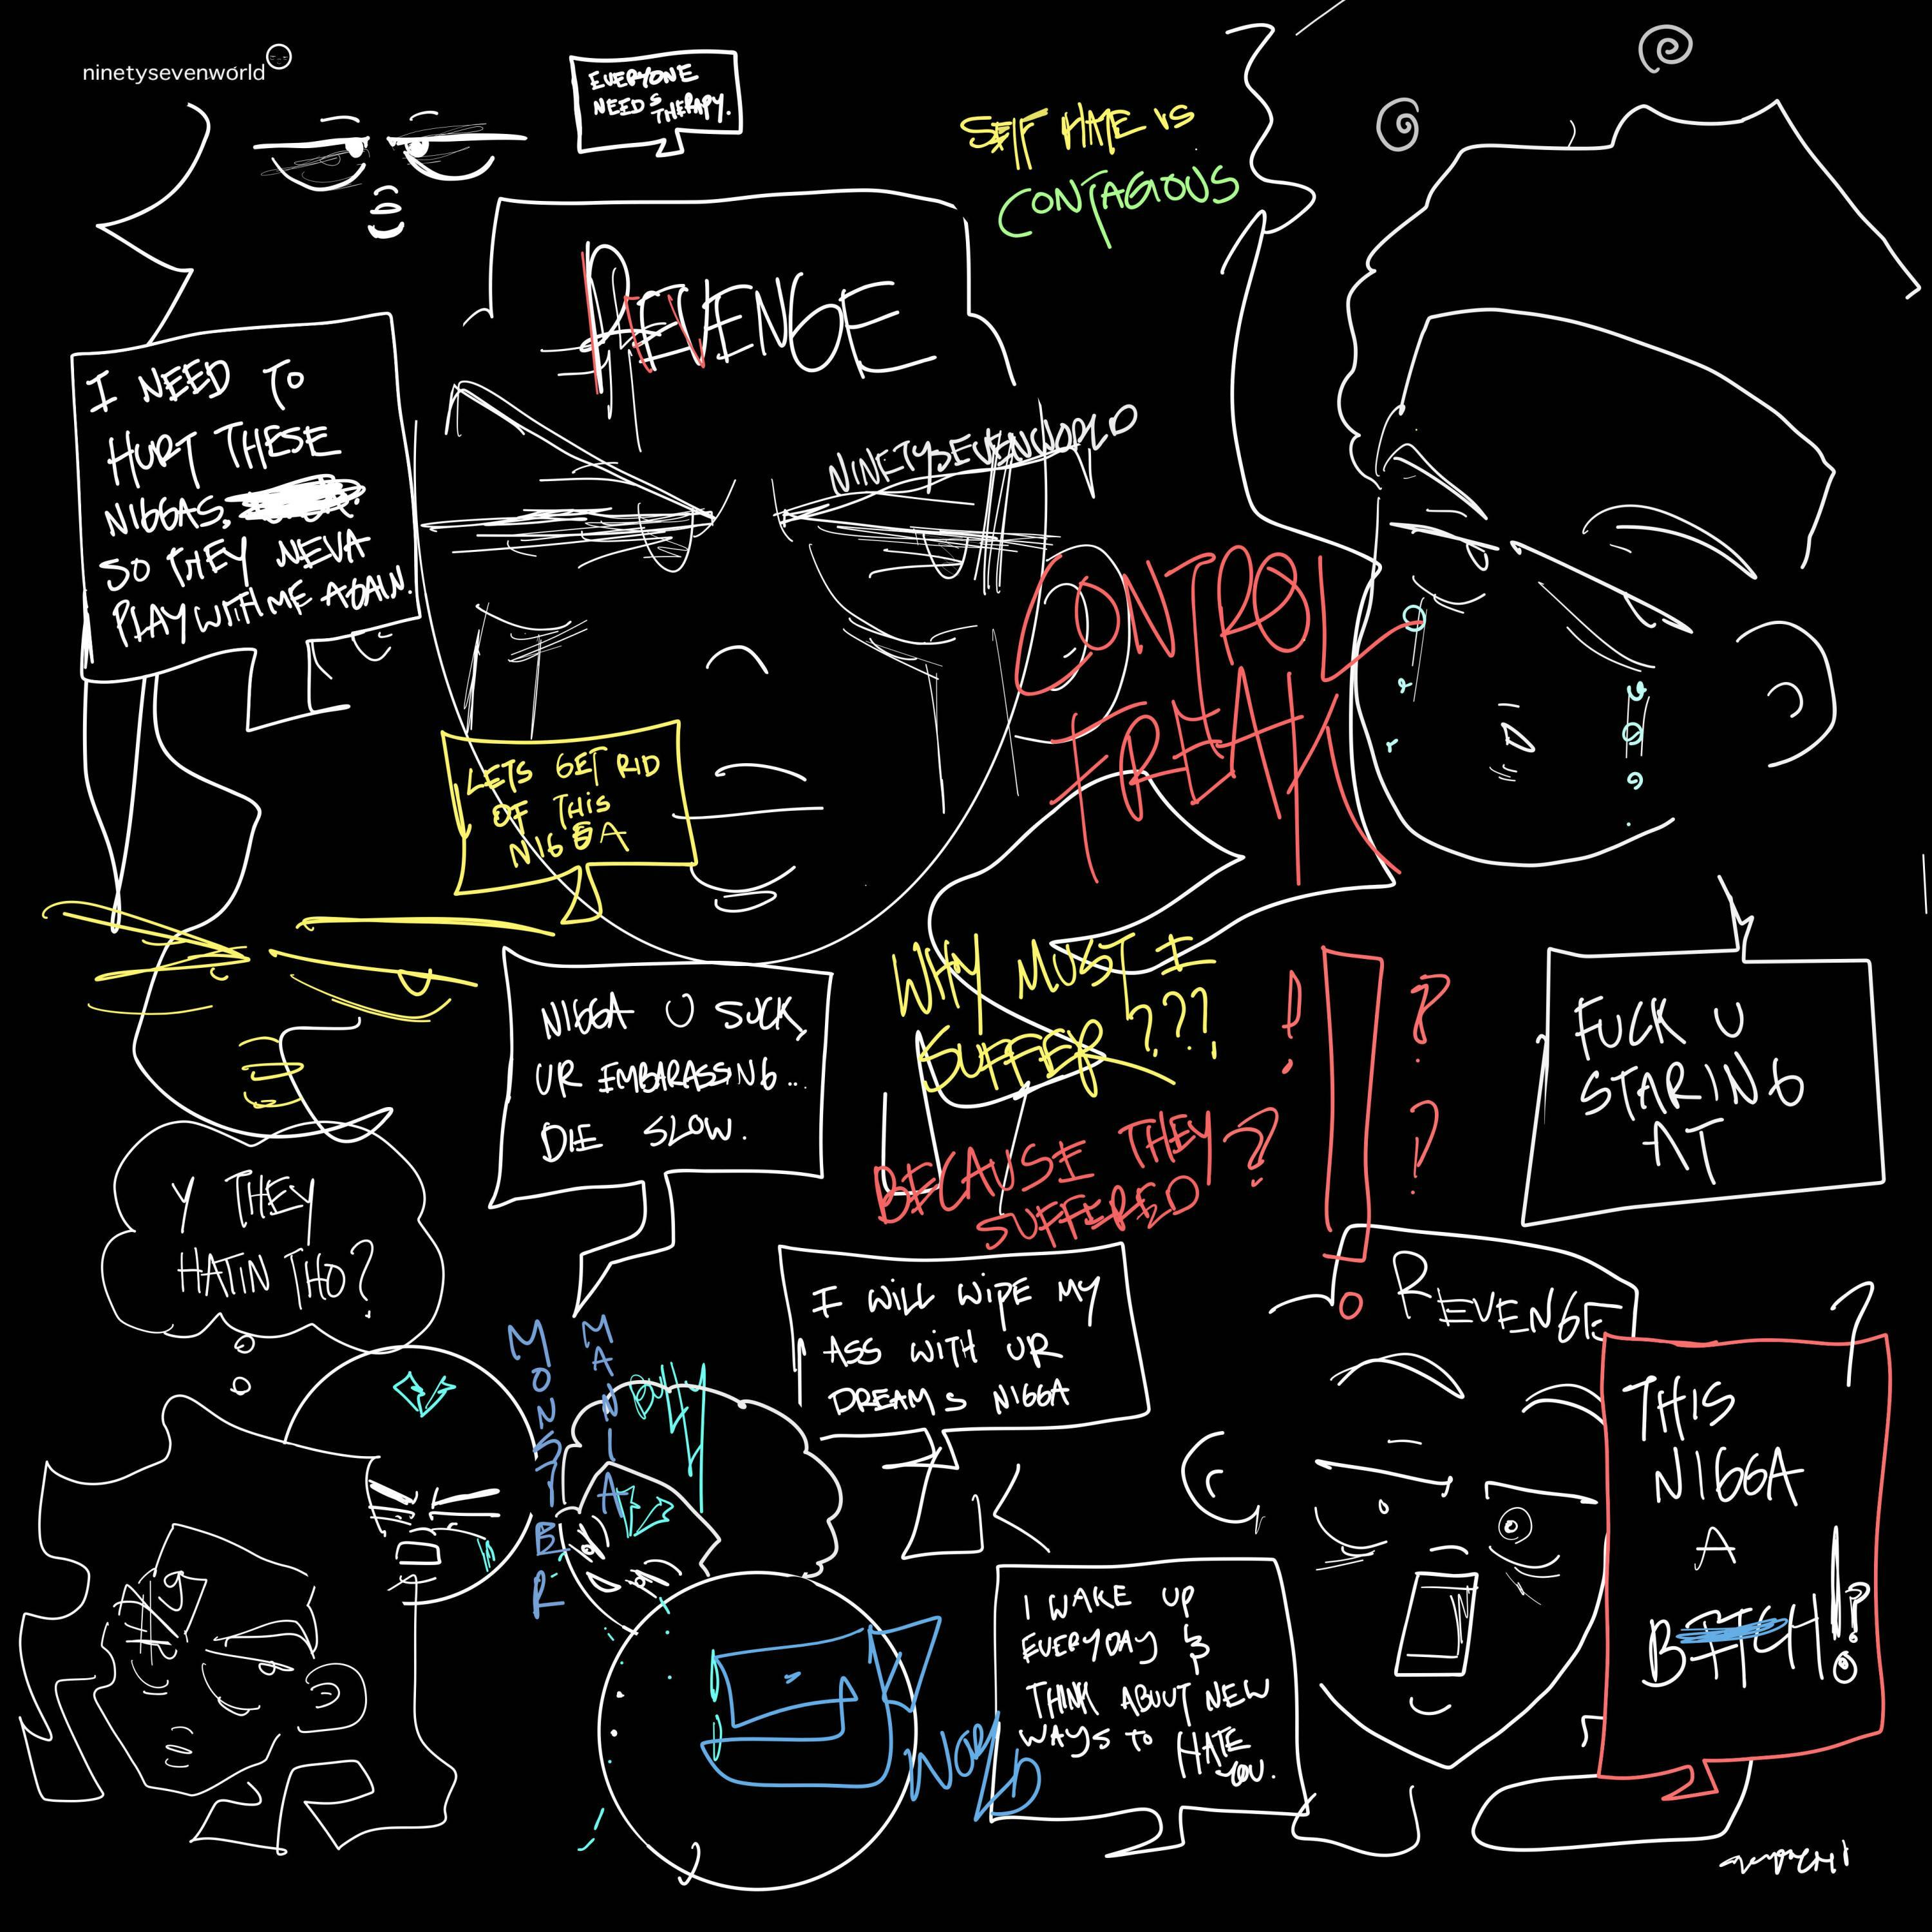 ninetysevenworld
EVERYONE
NEEDS
THERAPY.
SELF HATE IS
CONTAGIOUS
REVENGE
I NEED TO
HURT THESE
NIGGAS,
SO THEY NEVA
PLAY WITH ME AGAIN.
NINETYSEVENWORLD
CONTROL
FREAK
LETS GET RID
OF THIS
NIGGA
WHY MUST I
SUFFER???
BECAUSE THEY
SUFFERED?
NIGGA U SUCK,
UR EMBARASSING...
DIE SLOW.
FUCK U
STARING
AT
?
Y THEY
HATIN THO?
I WILL WIPE MY
ASS WITH UR
DREAMS NIGGA
MONSTER
MANIA
REVENGE
THIS
NIGGA
A
BITCH!?
I WAKE UP
EVERYDAY &
THINK ABOUT NEW
WAYS TO HATE
YOU.
WORLD